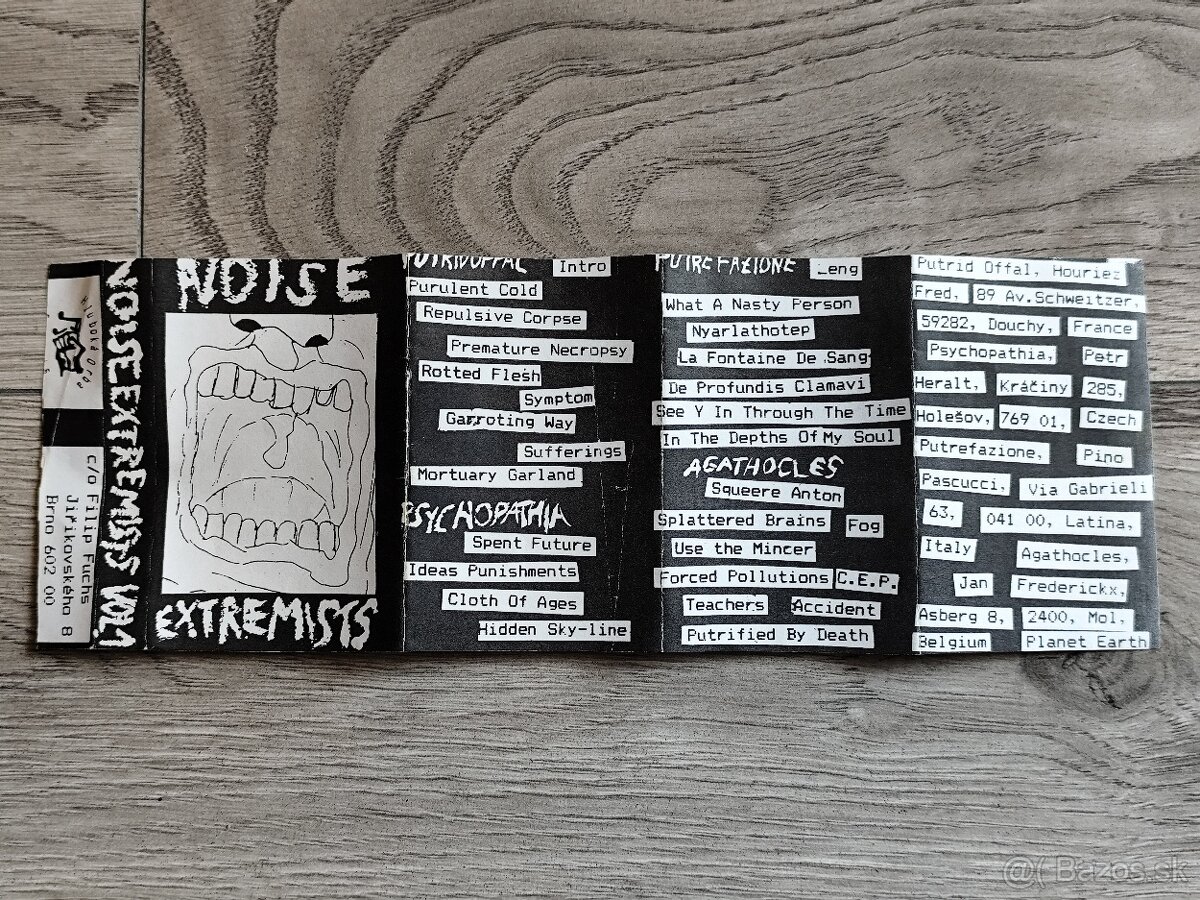 Hluboká Orba
c/o Filip Fuchs
Jiříkovského 8
Brno 602 00
NOISE EXTREMISTS VOL.1
NOISE
EXTREMISTS
PUTRID OFFAL Intro
Purulent Cold
Repulsive Corpse
Premature Necropsy
Rotted Flesh
Symptom
Garroting Way
Sufferings
Mortuary Garland
PSYCHOPATHIA
Spent Future
Ideas Punishments
Cloth Of Ages
Hidden Sky-line
PUTREFAZIONE Leng
What A Nasty Person
Nyarlathotep
La Fontaine De Sang
De Profundis Clamavi
See Y In Through The Time
In The Depths Of My Soul
AGATHOCLES
Squeere Anton
Splattered Brains Fog
Use the Mincer
Forced Pollutions C.E.P.
Teachers Accident
Putrified By Death
Putrid Offal, Houriez
Fred, 89 Av.Schweitzer,
59282, Douchy, France
Psychopathia, Petr
Heralt, Kráčiny 285,
Holešov, 769 01, Czech
Putrefazione, Pino
Pascucci, Via Gabrieli
63, 041 00, Latina,
Italy Agathocles,
Jan Frederickx,
Asberg 8, 2400, Mol,
Belgium Planet Earth
@( Bazos.sk